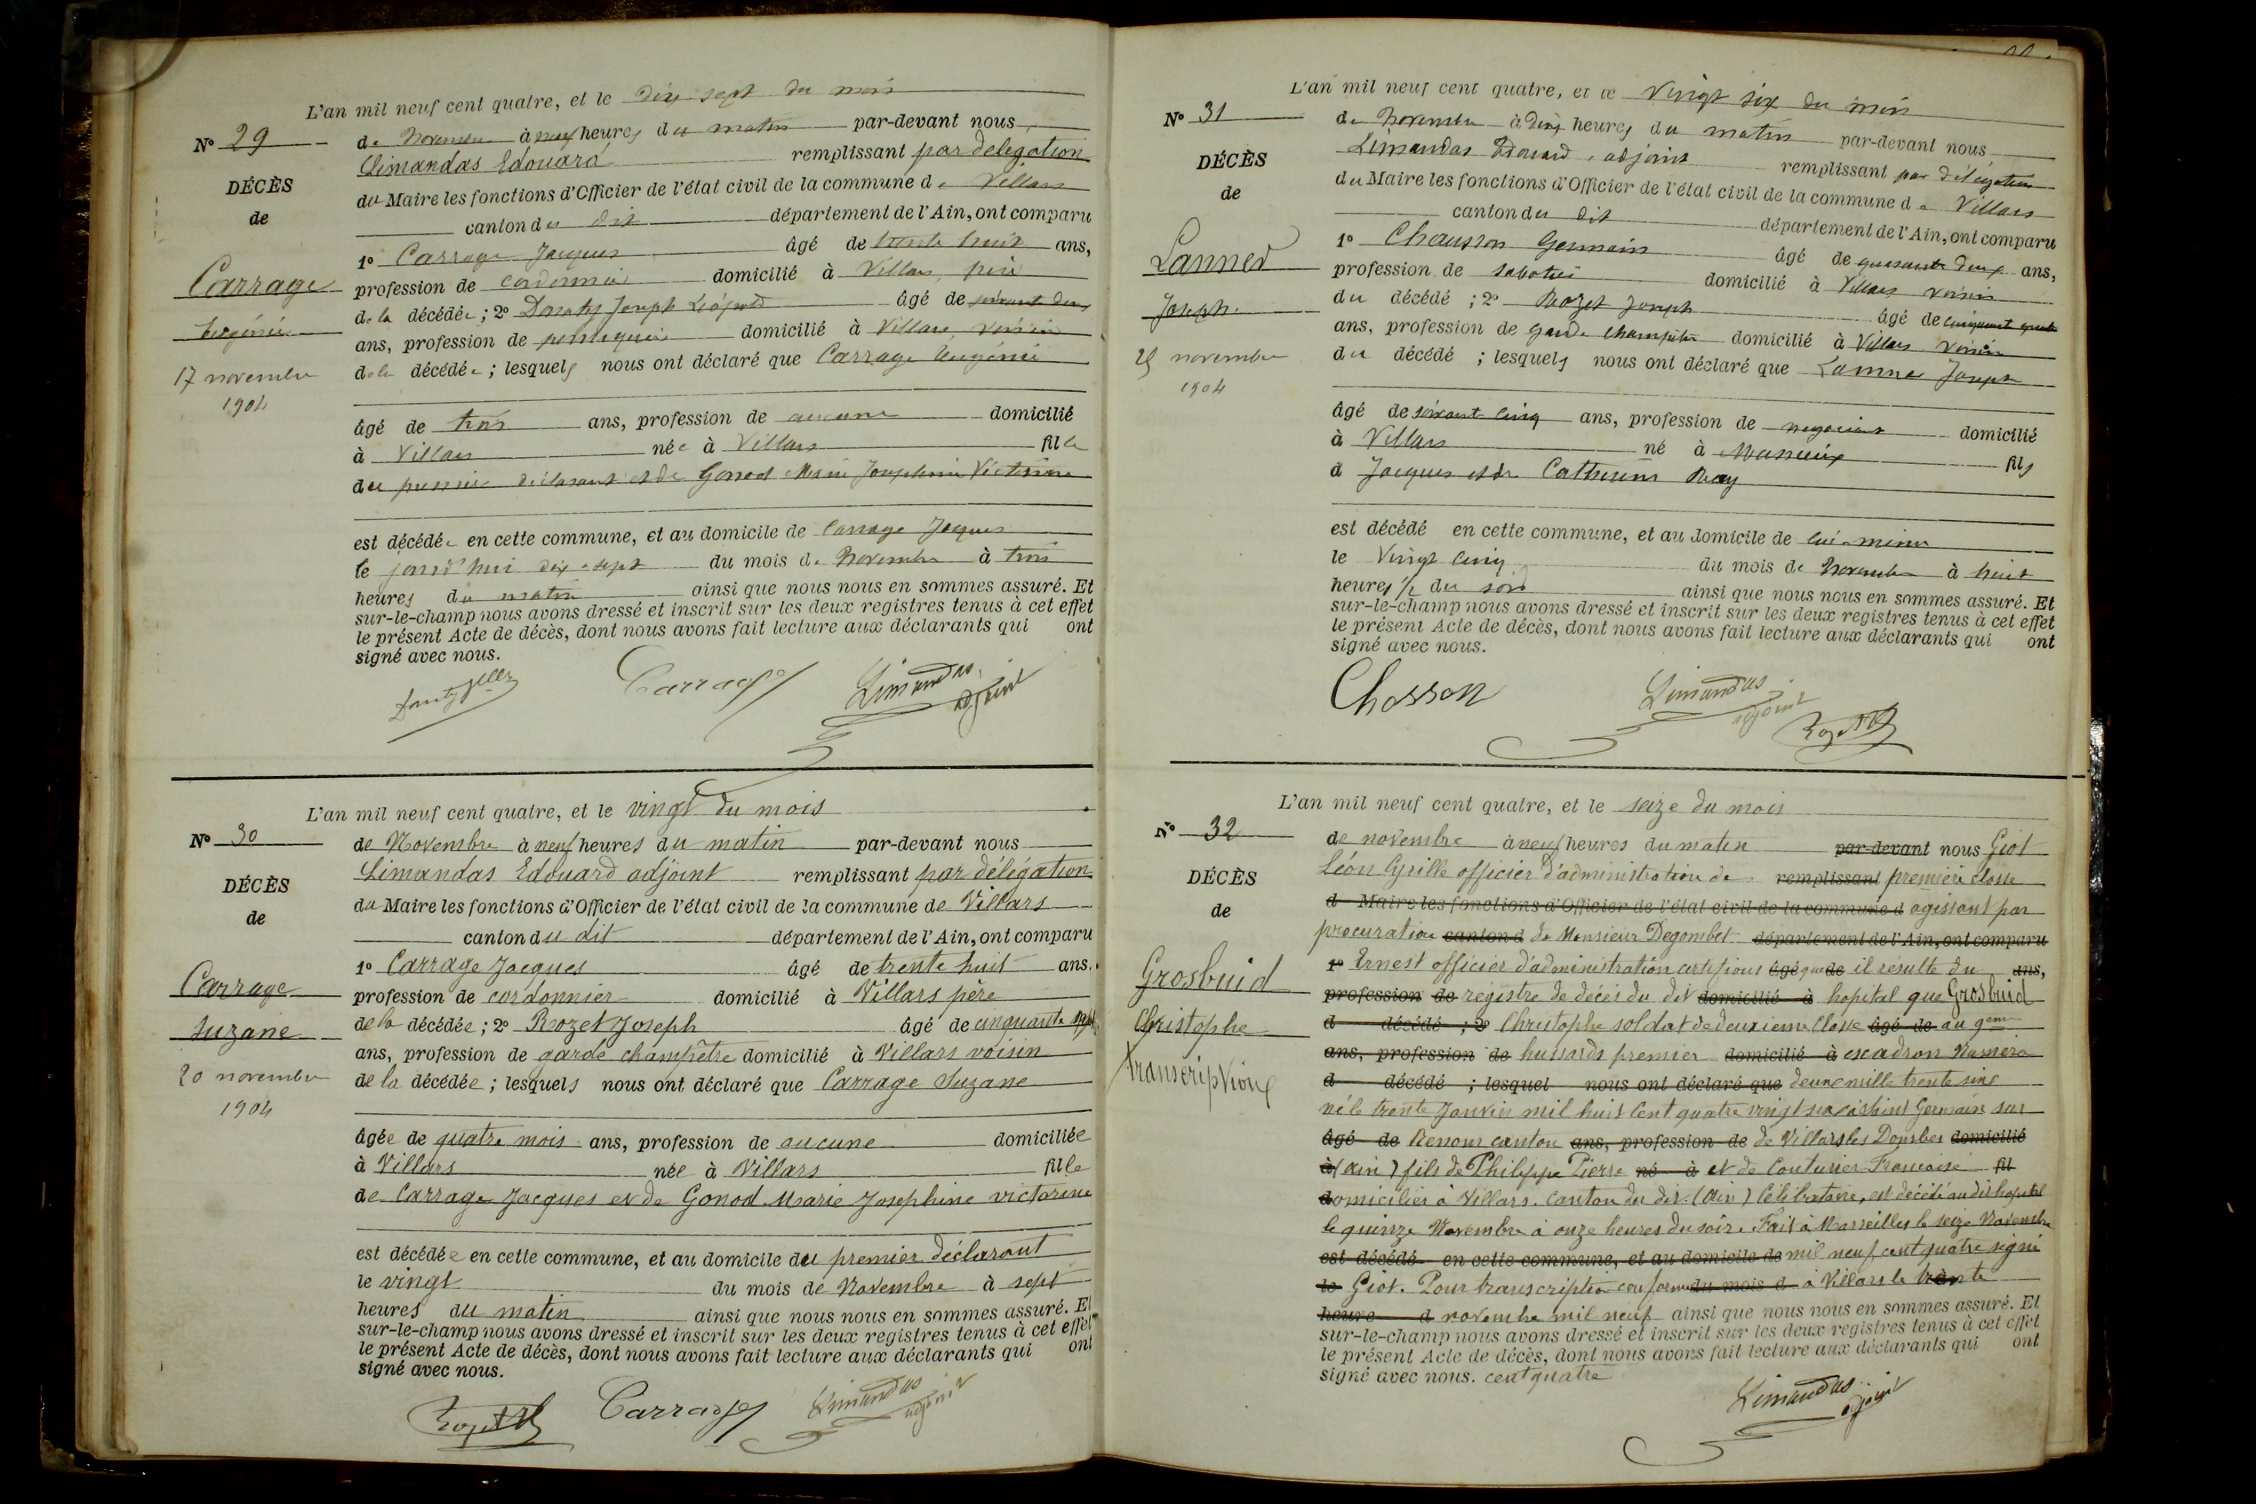 L'an mil neuf cent quatre, et le dix sept du mois
N° 29
de Novembre à neuf heures du matin par-devant nous
Limandas Edouard remplissant par délégation
DÉCÈS
du Maire les fonctions d'Officier de l'état civil de la commune de Villars
de
canton du dit département de l'Ain, ont comparu
1° Carrage Jacques âgé de trente huit ans,
Carrage
profession de cordonnier domicilié à Villars père
de la décédée ; 2° Donaty Joseph Léopold âgé de soixante deux
Eugénie
ans, profession de perruquier domicilié à Villars, voisin
17 novembre
de la décédée ; lesquels nous ont déclaré que Carrage Eugénie
1904
âgé de trois ans, profession de aucune domicilié
à Villars née à Villars fille
du premier déclarant et de Gonod Marie Joséphine Victorine
est décédée en cette commune, et au domicile de Carrage Jacques
le jourd'hui dix-sept du mois de Novembre à trois
heures du matin ainsi que nous nous en sommes assuré. Et
sur-le-champ nous avons dressé et inscrit sur les deux registres tenus à cet effet
le présent Acte de décès, dont nous avons fait lecture aux déclarants qui ont
signé avec nous.
Carrage Limandas adjoint
L'an mil neuf cent quatre, et le vingt du mois
N° 30
de Novembre à neuf heures du matin par-devant nous
Limandas Edouard adjoint remplissant par délégation
DÉCÈS
du Maire les fonctions d'Officier de l'état civil de la commune de Villars
de
canton du dit département de l'Ain, ont comparu
1° Carrage Jacques âgé de trente huit ans.
Carrage
profession de cordonnier domicilié à Villars père
de la décédée ; 2° Rozet Joseph âgé de cinquante
Suzane
ans, profession de garde champêtre domicilié à Villars voisin
20 novembre
de la décédée ; lesquels nous ont déclaré que Carrage Suzane
1904
âgée de quatre mois ans, profession de aucune domiciliée
à Villars née à Villars fille
de Carrage Jacques et de Gonod Marie Josephine victorine
est décédée en cette commune, et au domicile du premier déclarant
le vingt du mois de Novembre à sept
heures du matin ainsi que nous nous en sommes assuré. Et
sur-le-champ nous avons dressé et inscrit sur les deux registres tenus à cet effet
le présent Acte de décès, dont nous avons fait lecture aux déclarants qui ont
signé avec nous.
Rozet Carrage Limandas adjoint
L'an mil neuf cent quatre, et le Vingt six du mois
N° 31
de Novembre à dix heures du matin par-devant nous
Limandas Edouard, adjoint remplissant par délégation
DÉCÈS
du Maire les fonctions d'Officier de l'état civil de la commune de Villars
de
canton du dit département de l'Ain, ont comparu
1° Chausson Germain âgé de quarante deux ans,
Lanned
profession de sabotier domicilié à Villars voisin
du décédé ; 2° Rozet Joseph âgé de cinquante quatre
Joseph.
ans, profession de garde champêtre domicilié à Villars voisin
25 novembre
du décédé ; lesquels nous ont déclaré que Lanned Joseph
1904
âgé de soixant cinq ans, profession de negociant domicilié
à Villars né à fils
d Jacques et de Catherine Ray
est décédé en cette commune, et au domicile de lui-même
le Vingt cinq du mois de Novembre à huit
heures 1/2 du soir ainsi que nous nous en sommes assuré. Et
sur-le-champ nous avons dressé et inscrit sur les deux registres tenus à cet effet
le présent Acte de décès, dont nous avons fait lecture aux déclarants qui ont
signé avec nous.
Chosson Limandas adjoint Rozet
L'an mil neuf cent quatre, et le seize du mois
N° 32
de novembre à neuf heures du matin par-devant nous Giot
Léon Cyrille officier d'administration de remplissant première classe
DÉCÈS
d Maire les fonctions d'Officier de l'état civil de la commune d agissant par
de
procuration canton d de Monsieur Degombet département de l'Ain, ont comparu
1° Ernest officier d'administration certifions âgé que de il résulte du ans,
Grosbuid
profession de registre de décès du dit domicilié à hopital que Grosbuid
d décédé ; 2° Christophe soldat de deuxieme Classe âgé de au 9eme
Christophe
ans, profession de hussards premier domicilié à escadron Numéro
transcription
d décédé ; lesquel nous ont déclaré que deux mille trente cinq
né le trente Janvier mil huit Cent quatre vingt à Saint Germain sur
âgé de Renom canton ans, profession de de Villars les Dombes domicilié
à (Ain) fils de Philippe Pierre né à et de Couturier Francoise fil
domiciliés à Villars. canton du dit. (Ain) Célibataire, est décédé au dit hopital
le quinze Novembre à onze heures du soir. Fait à Marseille le seize Novembre
est décédé en cette commune, et au domicile de mil neuf cent quatre signé
le Giot. Pour transcription conforme du mois d à Villars le trente
heure d novembre mil neuf ainsi que nous nous en sommes assuré. Et
sur-le-champ nous avons dressé et inscrit sur les deux registres tenus à cet effet
le présent Acte de décès, dont nous avons fait lecture aux déclarants qui ont
signé avec nous. cent quatre
Limandas adjoint